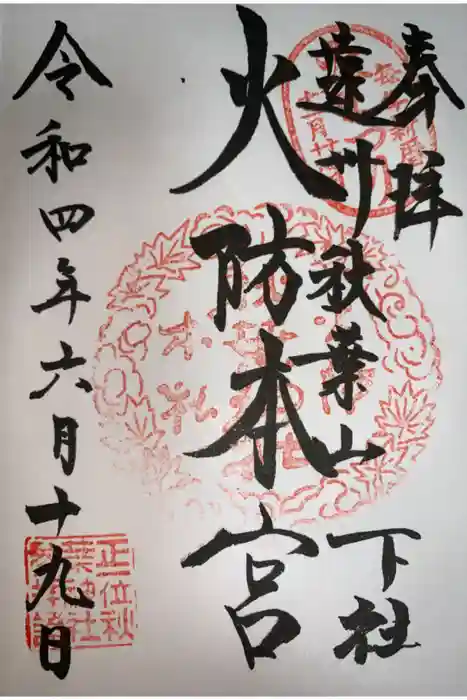 奉拝
遠州秋葉山下社
火防本宮
令和四年六月十九日
正一位秋
葉神社